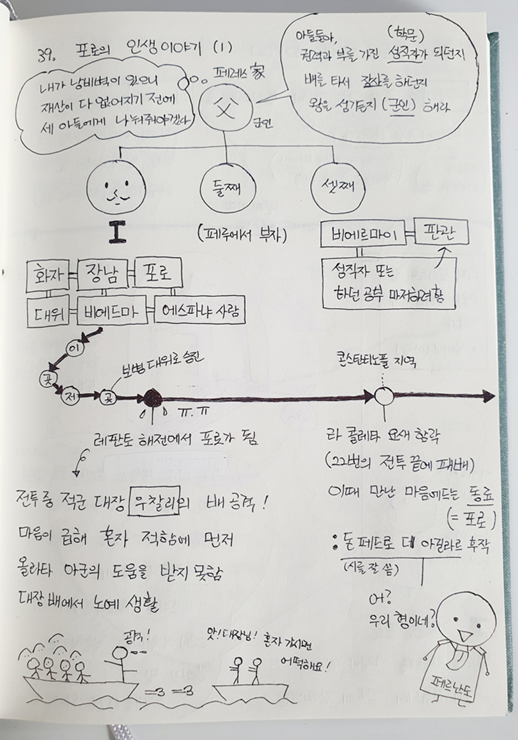 39. 포로의 인생 이야기 (1)
내가 낭비벽이 있으니
재산이 다 없어지기 전에
세 아들에게 나눠줘야겠다
페레스 家
父
군인
아들들아, (학문)
권력과 부를 가진 성직자가 되던지
배를 타서 장사를 하던지
왕을 섬기든지 (군인) 해라
둘째
셋째
I
(페루에서 부자)
비에르마이
판관
성직자 또는
하던 공부 마저하려함
화자
장남
포로
대위
비에드마
에스파냐 사람
이
곳
저
곳
보병 대위로 승진
콘스탄티노플 지역
ㅠ.ㅠ
레판토 해전에서 포로가 됨
라 골레타 요새 함락
(22번의 전투 끝에 패배)
이때 만난 마음에드는 동료
(= 포로)
: 돈 페드로 데 아길라르 후작
(시를 잘 씀)
전투 중 적군 대장 우찰리의 배 공격!
마음이 급해 혼자 적함에 먼저
올라타 아군의 도움을 받지 못함
대장 배에서 노예 생활
어?
우리 형이네?
페르난도
공격!
=3 =3
앗! 대장님! 혼자 가시면
어떡해요!